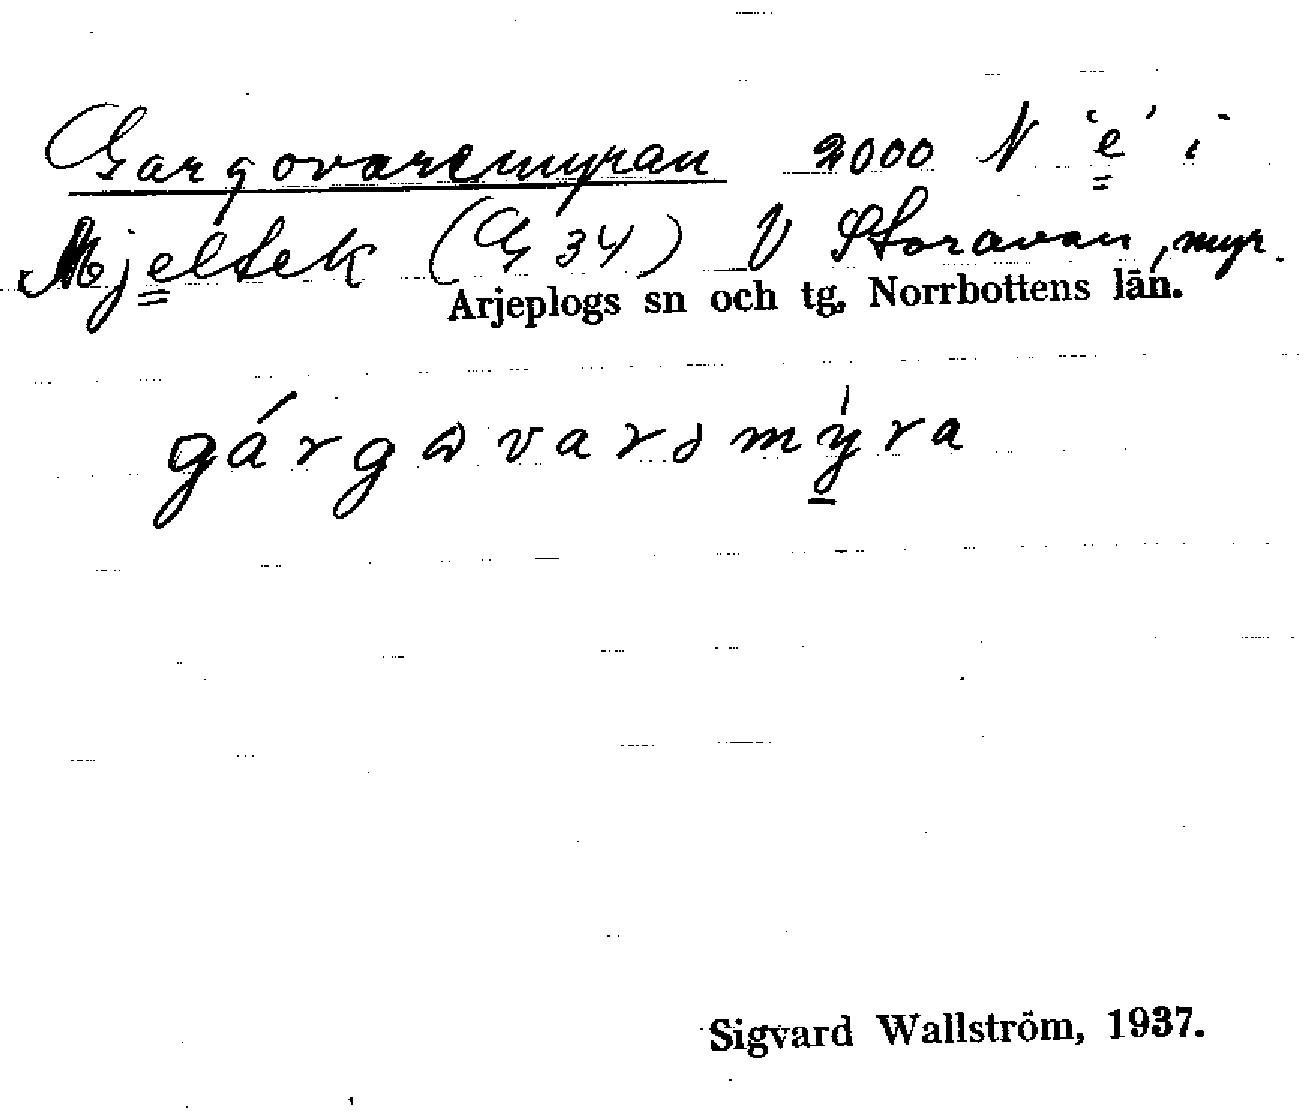 Gargovaremyran 2000 N 'e' i
Mjeltek (G 34) V Storavan, myr.
Arjeplogs sn och tg, Norrbottens län.
gárgωvarəmy̱ra
Sigvard Wallström, 1937.